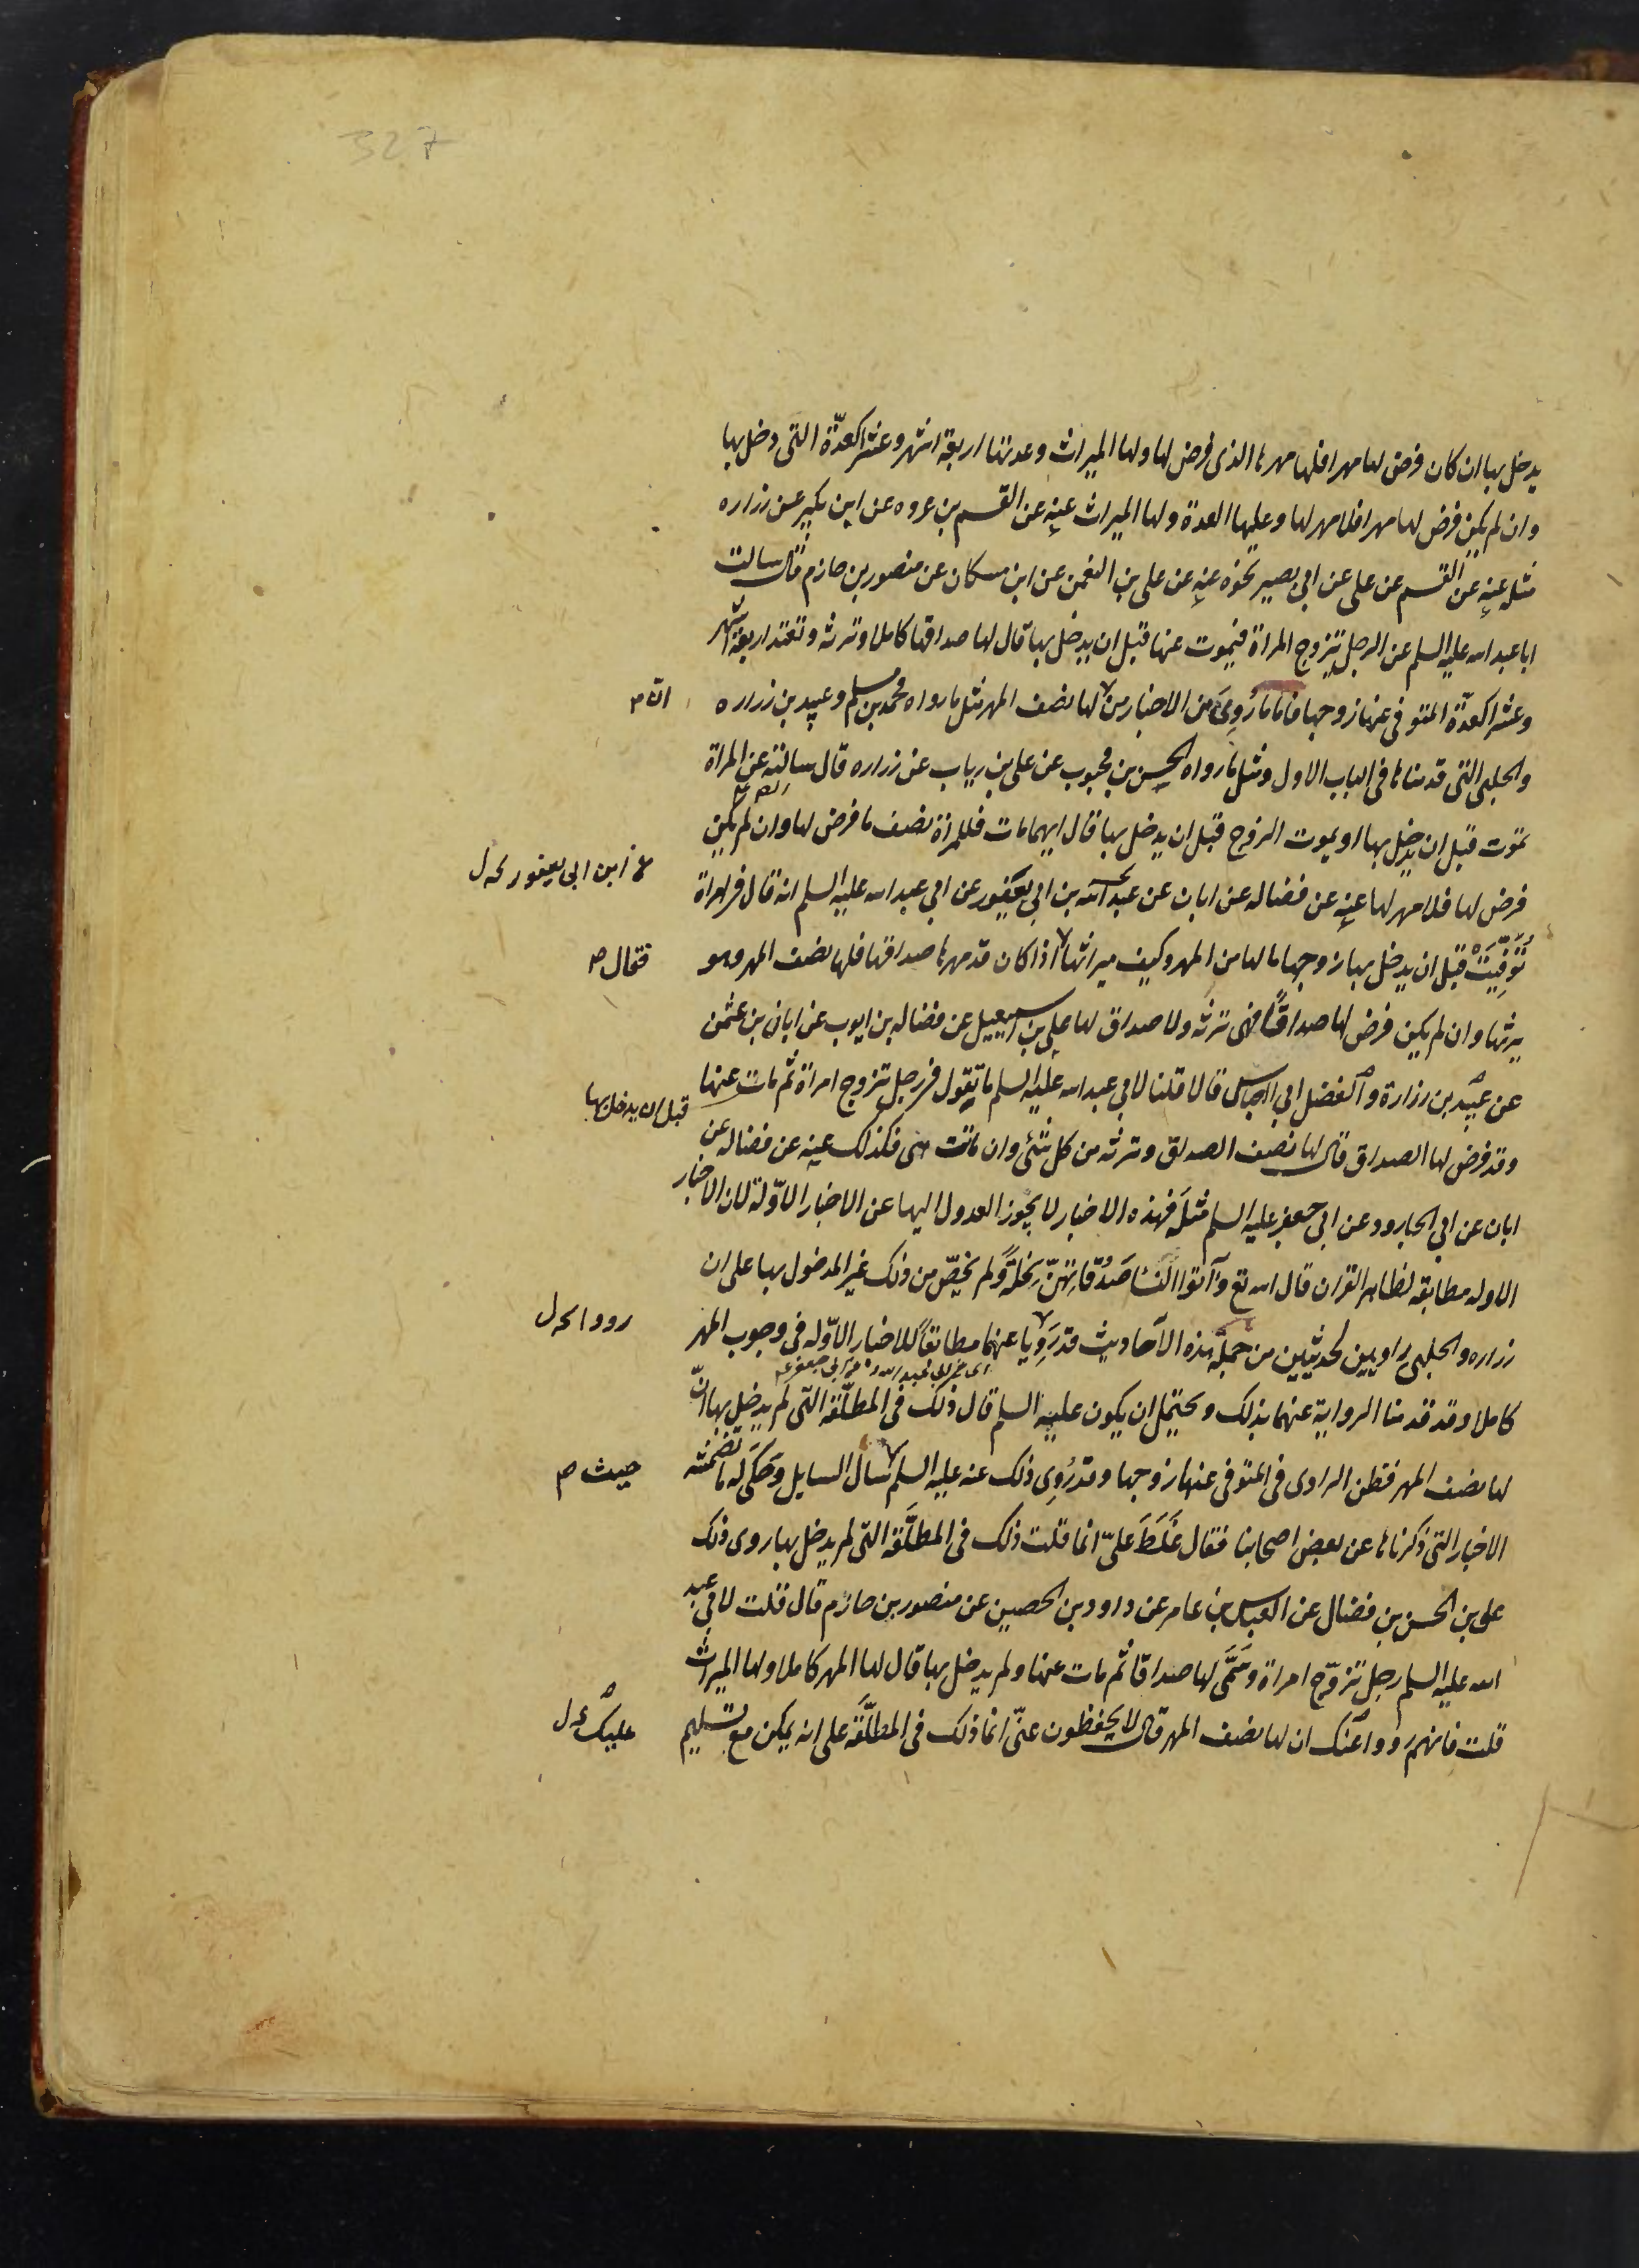 327
يدخل بها ان كان فرض لها مهرا فلها مهرها الذى فرض لها ولها الميراث وعدتها اربعة اشهر وعشرا كعدّة التى دخل بها
وان لم يكن فرض لها مهرا فلا مهر لها وعليها العدة ولها الميراث عنه عن القسم بن عروه عن ابن بكير عن زراره
مثله عنه عن القسم عن على عن ابى بصير نحوه عنه عن على بن النعمن عن ابن مسكان عن منصور بن حازم قال سالت
ابا عبد الله عليه السلم عن الرجل يتزوج المراة فيموت عنها قبل ان يدخل بها قال لها صداقها كاملا وترثه وتعتد اربعة اشهر
وعشرا كعدّة المتوفى عنها زوجها فاما ما رُوِىَ من الاخبار من لها نصف المهر مثل ما رواه محمد بن مسلم وعبيد بن زراره
ان م
والحلبى التى قدمناها فى الباب الاول ومثل ما رواه الحسن بن محبوب عن على بن رياب عن زراره قال سالته عن المراة
تموت قبل ان يدخل بها او يموت الزوج قبل ان يدخل بها قال ايهما مات فللمراة نصف ما فرض لها وان لم يكن
فرض لها فلا مهر لها عنه عن فضاله عن ابان عن عبد الله بن ابى يعفور عن ابى عبد الله عليه السلم انه قال فى امراة
ابن ابى يعفور
تُوُفِّيَتْ قبل ان يدخل بها زوجها ما لها من المهر وكيف ميراثها اذا كان قد مهرها صداقها فلها نصف المهر وهو
فقال
يرثها وان لم يكن فرض لها صداقًا فهى ترثه ولا صداق لها على بن اسمعيل عن فضاله بن ايوب عن ابان بن عثمن
عن عبيد بن زرارة والفضل ابى العباس قالا قلنا لابى عبد الله عليه السلم ما تقول فى رجل تزوج امراة ثم مات عنها
قبل ان يدخل بها
وقد فرض لها الصداق قال لها نصف الصداق وترثه من كل شئ وان ماتت هى فكذلك عنه عن فضاله عن
ابان عن ابى الجارود عن ابى جعفر عليه السلم مثله فهذه الاخبار لا يجوز العدول اليها عن الاخبار الاوّلة لان الاخبار
الاوله مطابقه لظاهر القران قال الله تع وَآتوا النسا صَدُقاتهنّ نِحْلَةً ولم يخصّ من ذلك غير المدخول بها على ان
زراره والحلبى راويين لحديثين من جملة هذه الاحاديث قد رَوَيا عنهما مطابقًا للاخبار الاوّله فى وجوب المهر
رووا
كاملا وقد قدمنا الرواية عنهما بذلك ويحتمل ان يكون عليه السلم قال ذلك فى المطلّقة التى لم يدخل بها انّ
لها نصف المهر فظن الراوى فى المتوفى عنها زوجها وقد رُوِى ذلك عنه عليه السلم سال السايل وحَكَى له ما تضمنته
حيث
الاخبار التى ذكرناها عن بعض اصحابنا فقال غَلَطَ علىّ انما قلت ذلك فى المطلّقة التى لم يدخل بها روى ذلك
على بن الحسن بن فضال عن العباس بن عامر عن داود بن الحصين عن منصور بن حازم قال قلت لابى عبد
الله عليه السلم رجل تزوّج امراة وسَمَّى لها صداقا ثم مات عنها ولم يدخل بها قال لها المهر كاملا ولها الميراث
قلت فانهم رووا عنك ان لها نصف المهر قال لا يحفظون عنّى انما ذلك فى المطلّقة على انه يمكن مع تسليم
عليك